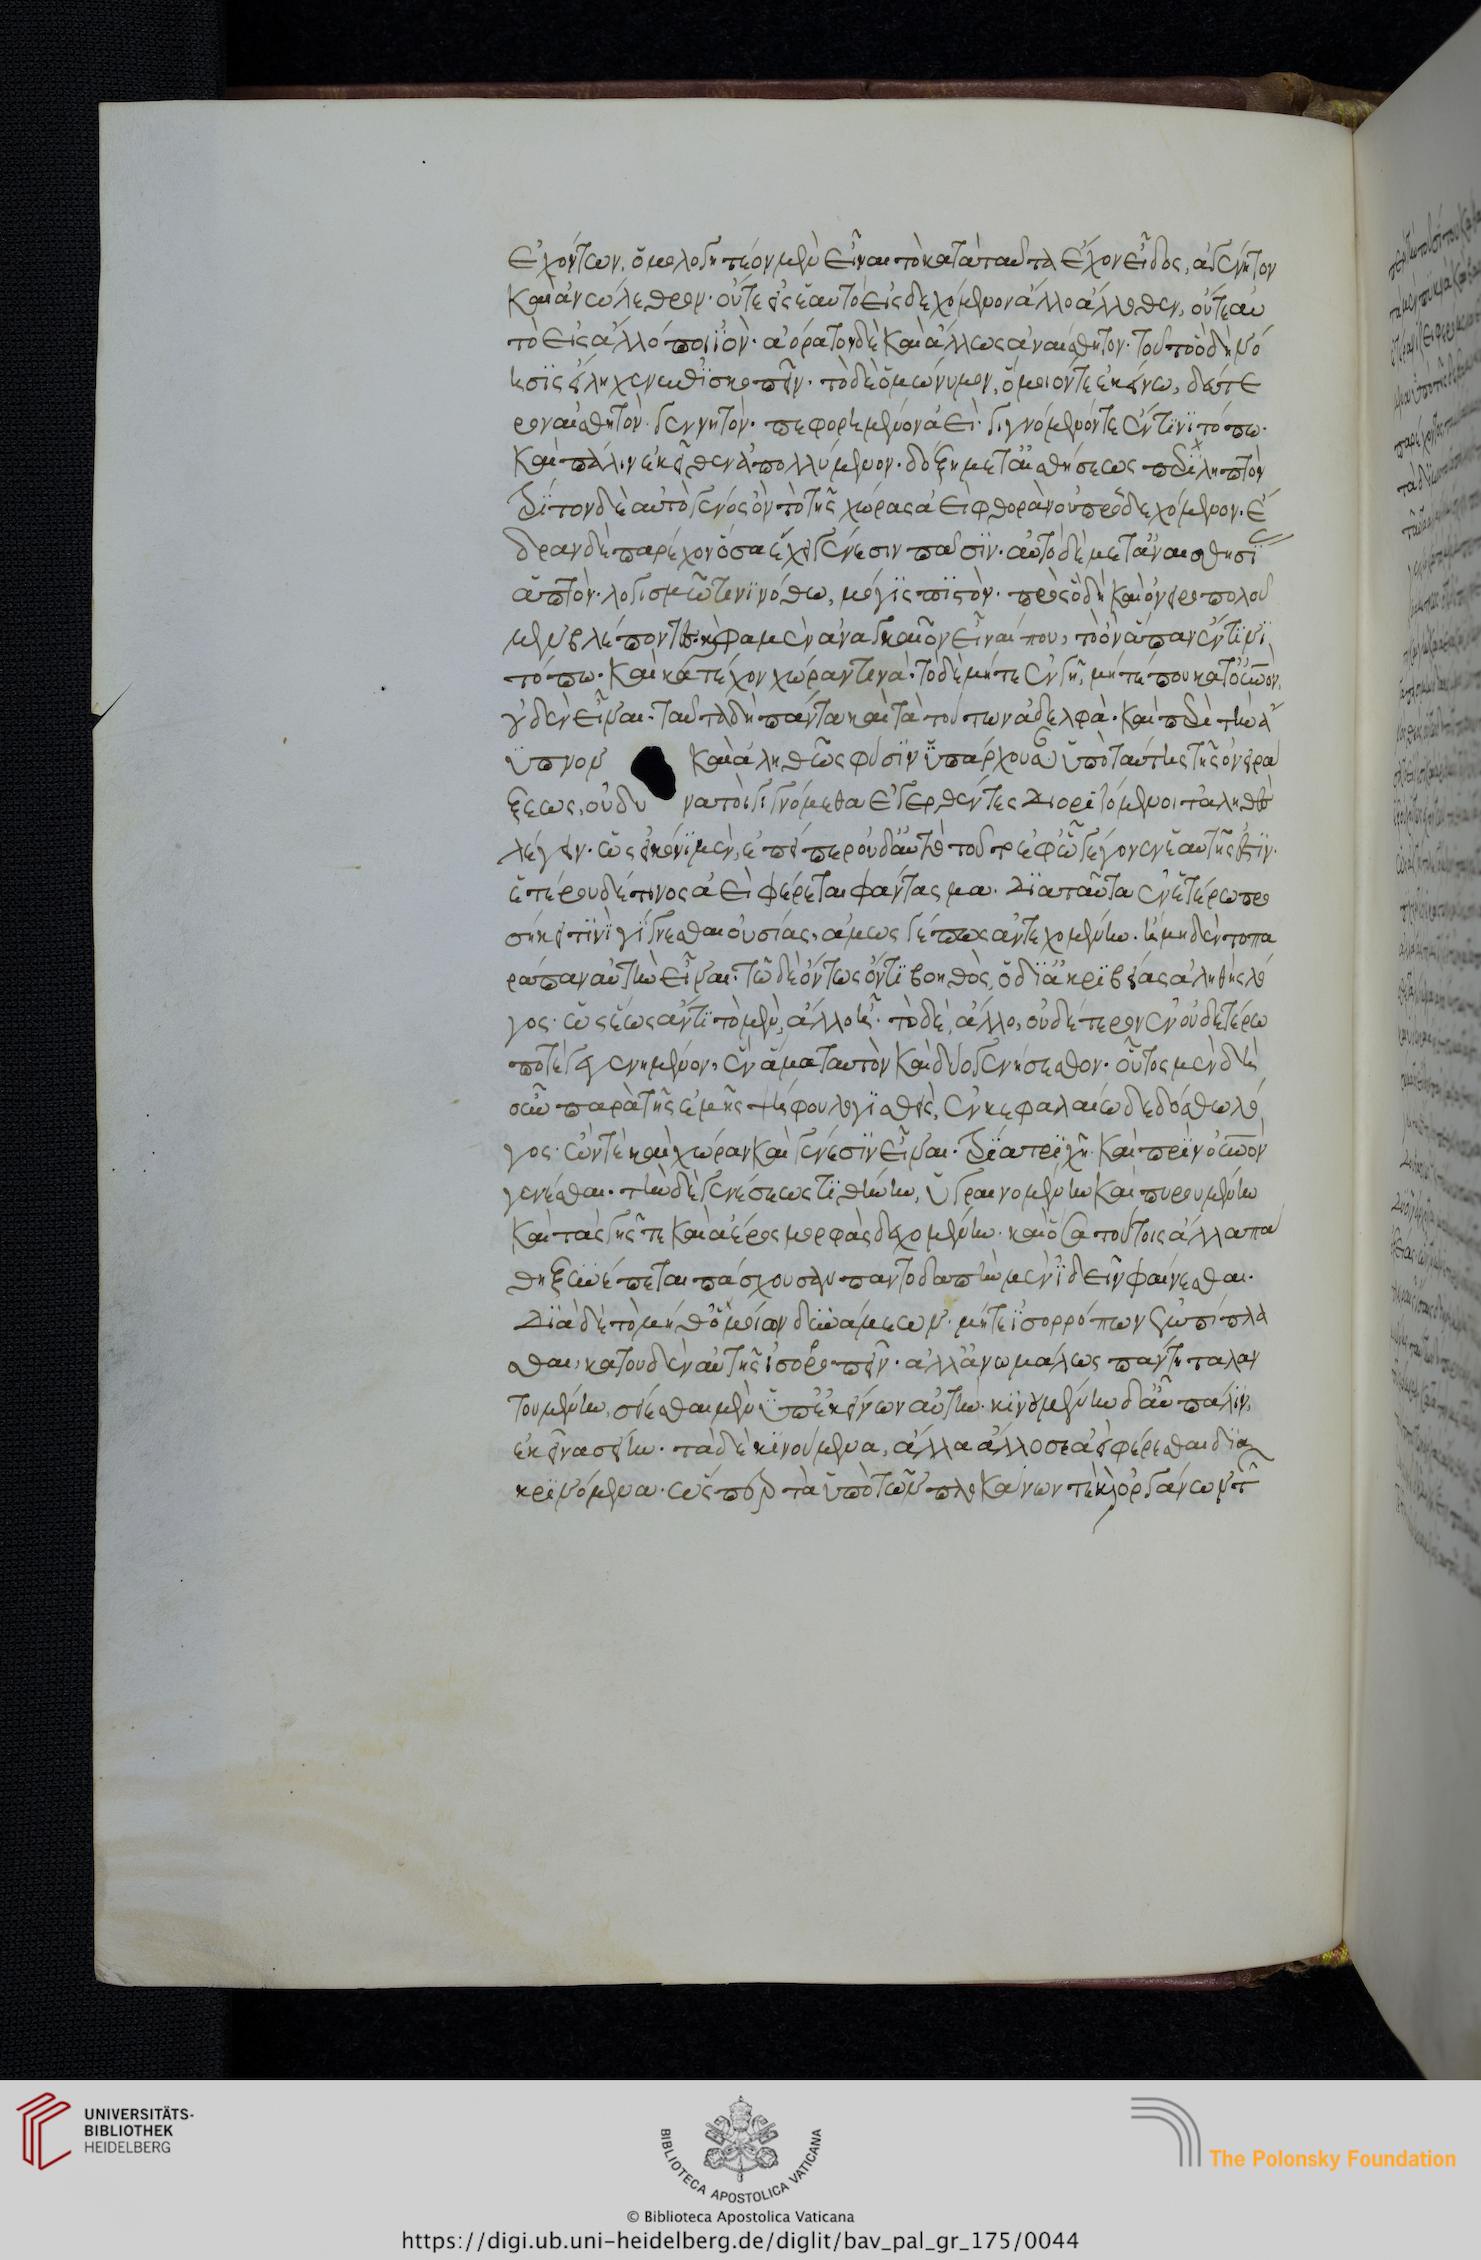 ἐχόντων, ὁμολογητέον μὲν εἶναι τὸ κατὰ ταῦτα ἔχον εἶδος, ἀγένητον
καὶ ἀνώλεθρον· οὔτε εἰς ἑαυτὸ εἰσδεχόμενον ἄλλο ἄλλοθεν, οὔτε αὐ
τὸ εἰς ἄλλό ποι ἰὸν· ἀόρατον δὲ καὶ ἄλλως ἀναίσθητον· τοῦτο ὃ δὴ νό
ησις εἴληχεν ἐπισκοπεῖν· τὸ δὲ ὁμώνυμον, ὅμοιόν τε ἐκείνω, δεύτε
ρον αἰσθητὸν· γεννητὸν· πεφορημένον ἀεὶ· γιγνόμενόν τε ἔν τινι τόπω·
καὶ πάλιν ἐκεῖθεν ἀπολλύμενον· δόξη μετ' αἰσθήσεως περιληπτὸν
τρίτον δὲ αὐτὸ γένος ὂν τὸ τῆς χώρας ἀεὶ φθορὰν οὐ προσδεχόμενον· ἕ
δραν δὲ παρέχον ὅσα ἔχει γένεσιν πᾶσιν· αὐτὸ δὲ μετ' ἀναισθησί
ἁπτὸν· λογισμῶ τινὶ νόθω, μόγις πιστὸν· πρὸς ὃ δὴ καὶ ὀνειροπολοῦ
μεν βλέποντες καὶ φαμὲν ἀναγκαῖον εἶναί που, τὸ ὂν ἅπαν ἔν τινι
τόπω· καὶ κατέχον χώραν τινὰ· τὸ δὲ μήτε ἐν γῆ, μήτέ που κατ' οὐρανὸν,
οὐδὲν εἶναι. ταῦτα δὴ πάντα καὶ τὰ τούτων ἀδελφὰ· καὶ περὶ τὴν ἀ
ϋπνον καὶ ἀληθῶς φύσιν ὑπάρχουσαν ὑπὸ ταύτης τῆς ὀνειρώ
ξεως, οὐ δυνατοὶ γιγνόμεθα ἐγερθέντες διοριζόμενοι τἀληθὲς
λέγειν· ὡς εἰκόνι μὲν, ἐπείπερ οὐδ' αὐτὸ τοῦτο ἐφ' ὧ γέγονεν ἑαυτῆς ἐστὶν·
ἑτέρου δέ τινος ἀεὶ φέρεται φάντασμα. διὰ ταῦτα ἐν ἑτέρω προ
σήκει τινὶ γίγνεσθαι οὐσίας, ἀμώς γέ πως ἀντεχομένην. ἢ μηδὲν τὸ πα
ράπαν αὐτὴν εἶναι· τῶ δὲ ὄντως ὄντι βοηθὸς, ὁ δι' ἀκριβείας ἀληθὴς λό
γος· ὡς ἕως ἄν τι τὸ μὲν, ἄλλο ἦ· τὸ δὲ, ἄλλο, οὐδέτερον ἐν οὐδετέρω
ποτὲ γεγενημένον, ἓν ἅμα ταυτὸν καὶ δύο γενήσεσθον. οὗτος μὲν δὴ
οὖν παρὰ τῆς ἐμῆς ψήφου λογισθεὶς, ἐν κεφαλαίω δεδόσθω λό
γος· ὄν τὲ καὶ χώραν καὶ γένεσιν εἶναι· τρία τριχῆ· καὶ πρὶν οὐρανὸν
γενέσθαι. τὴν δὲ γενέσεως τιθήνην, ὑγραινομένην καὶ πυρουμένην
καὶ τὰς γῆς τε καὶ ἀέρος μορφὰς δεχομένην· καὶ ὅσα τούτοις ἄλλα πά
θη ξυνέπεται πάσχουσαν παντοδαπὴν μὲν ἰδεῖν φαίνεσθαι.
διὰ δὲ τὸ μήθ' ὁμοίων δυνάμεων· μήτε ἰσορρόπων ἐμπίπλα
σθαι, κατ' οὐδὲν αὐτῆς ἰσορροπεῖν· ἀλλ' ἀνωμάλως πάντη ταλαν
τουμένην, σείεσθαι μὲν ὑπ' ἐκείνων αὐτὴν· κινουμένην δ' αὖ πάλιν,
ἐκεῖνα σείειν. τὰ δὲ κινούμενα, ἄλλα ἄλλοσε ἀεὶ φέρεσθαι δια
κρινόμενα· ὥσπερ τὰ ὑπὸ τῶν πλοκάνων τὲ καὶ ὀργάνων τ
UNIVERSITÄTS-
BIBLIOTHEK
HEIDELBERG
BIBLIOTECA APOSTOLICA VATICANA
The Polonsky Foundation
© Biblioteca Apostolica Vaticana
https://digi.ub.uni-heidelberg.de/diglit/bav_pal_gr_175/0044